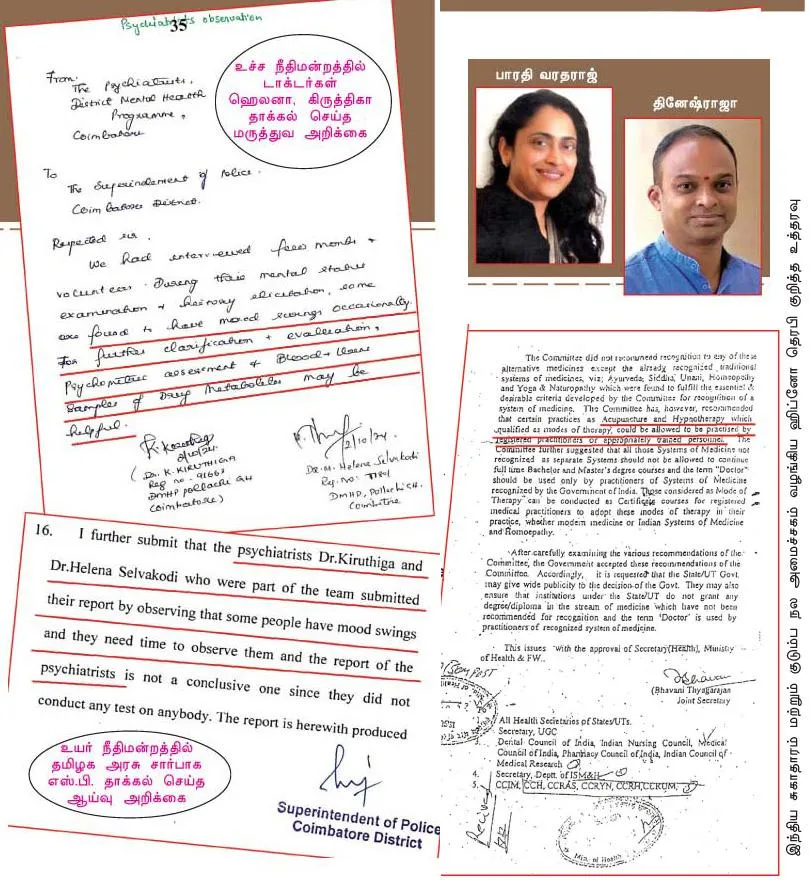 Psychiatrists observation
35
From
The Psychiatrists,
District Mental Health
Programme,
Coimbatore
உச்ச நீதிமன்றத்தில்
டாக்டர்கள்
ஹெலனா, கிருத்திகா
தாக்கல் செய்த
மருத்துவ அறிக்கை
To
The Superintendent of Police.
Coimbatore District.
Respected sir.
We had interviewed few monks +
volunteers. During their mental status
examination + history elicitation, some
are found to have mood swings occasionally.
For further clarification + evaluation,
Psychometric assessment & Blood + Urine
Samples of Drug Metabolites may be
helpful.
2/10/24
(Dr. K. KIRUTHIGA
Reg no - 91667
DMHP Pollachi GH
Coimbatore)
2/10/24
Dr. M. Helena Selvakodi
Reg. No:
DMHP, Pollachi GH.
Coimbatore
16. I further submit that the psychiatrists Dr.Kiruthiga and
Dr.Helena Selvakodi who were part of the team submitted
their report by observing that some people have mood swings
and they need time to observe them and the report of the
psychiatrists is not a conclusive one since they did not
conduct any test on anybody. The report is herewith produced
உயர் நீதிமன்றத்தில்
தமிழக அரசு சார்பாக
எஸ்.பி. தாக்கல் செய்த
ஆய்வு அறிக்கை
Superintendent of Police
Coimbatore District
பாரதி வரதராஜ்
தினேஷ்ராஜா
The Committee did not recommend recognition to any of these
alternative medicines except the already recognized traditional
systems of medicines, viz; Ayurveda, Siddha, Unani, Homoeopathy
and Yoga & Naturopathy which were found to fulfill the essential &
desirable criteria developed by the Committee for recognition of a
system of medicine. The Committee has, however, recommended
that certain practices as Acupuncture and Hypnotherapy which
qualified as modes of therapy, could be allowed to be practised by
registered practitioners or appropriately trained personnel. The
Committee further suggested that all those Systems of Medicine not
recognized as separate Systems should not be allowed to continue
full time Bachelor and Master's degree courses and the term "Doctor"
should be used only by practitioners of Systems of Medicine
recognized by the Government of India. Those considered as Mode of
Therapy can be conducted as Certificate courses for registered
medical practitioners to adopt these modes of therapy in their
practice, whether modern medicine or Indian Systems of Medicine
and Homoepathy.
After carefully examining the various recommendations of the
Committee, the Government accepted these recommendations of the
Committee. Accordingly, it is requested that the State/UT Govt.
may give wide publicity to the decision of the Govt. They may also
ensure that institutions under the State/UT do not grant any
degree/diploma in the stream of medicine which have not been
recommended for recognition and the term 'Doctor' is used by
practitioners of recognized system of medicine.
This issues with the approval of Secretary(Health), Ministry
of Health & FW.
(Bhavani Thyagarajan
Joint Secretary
All Health Secretaries of States/UTs.
Secretary, UGC
3. Dental Council of India, Indian Nursing Council, Medical
Council of India, Pharmacy Council of India, Indian Council of
Medical Research
4. Secretary, Deptt. of ISM&H
5. CCIM, CCH, CCRAS, CCRYN, CCRH, CCRUM,
Min. of Health
இந்திய சுகாதாரம் மற்றும் குடும்ப நல அமைச்சகம் வழங்கிய ஹிப்னோ தெரபி குறித்த உத்தரவு